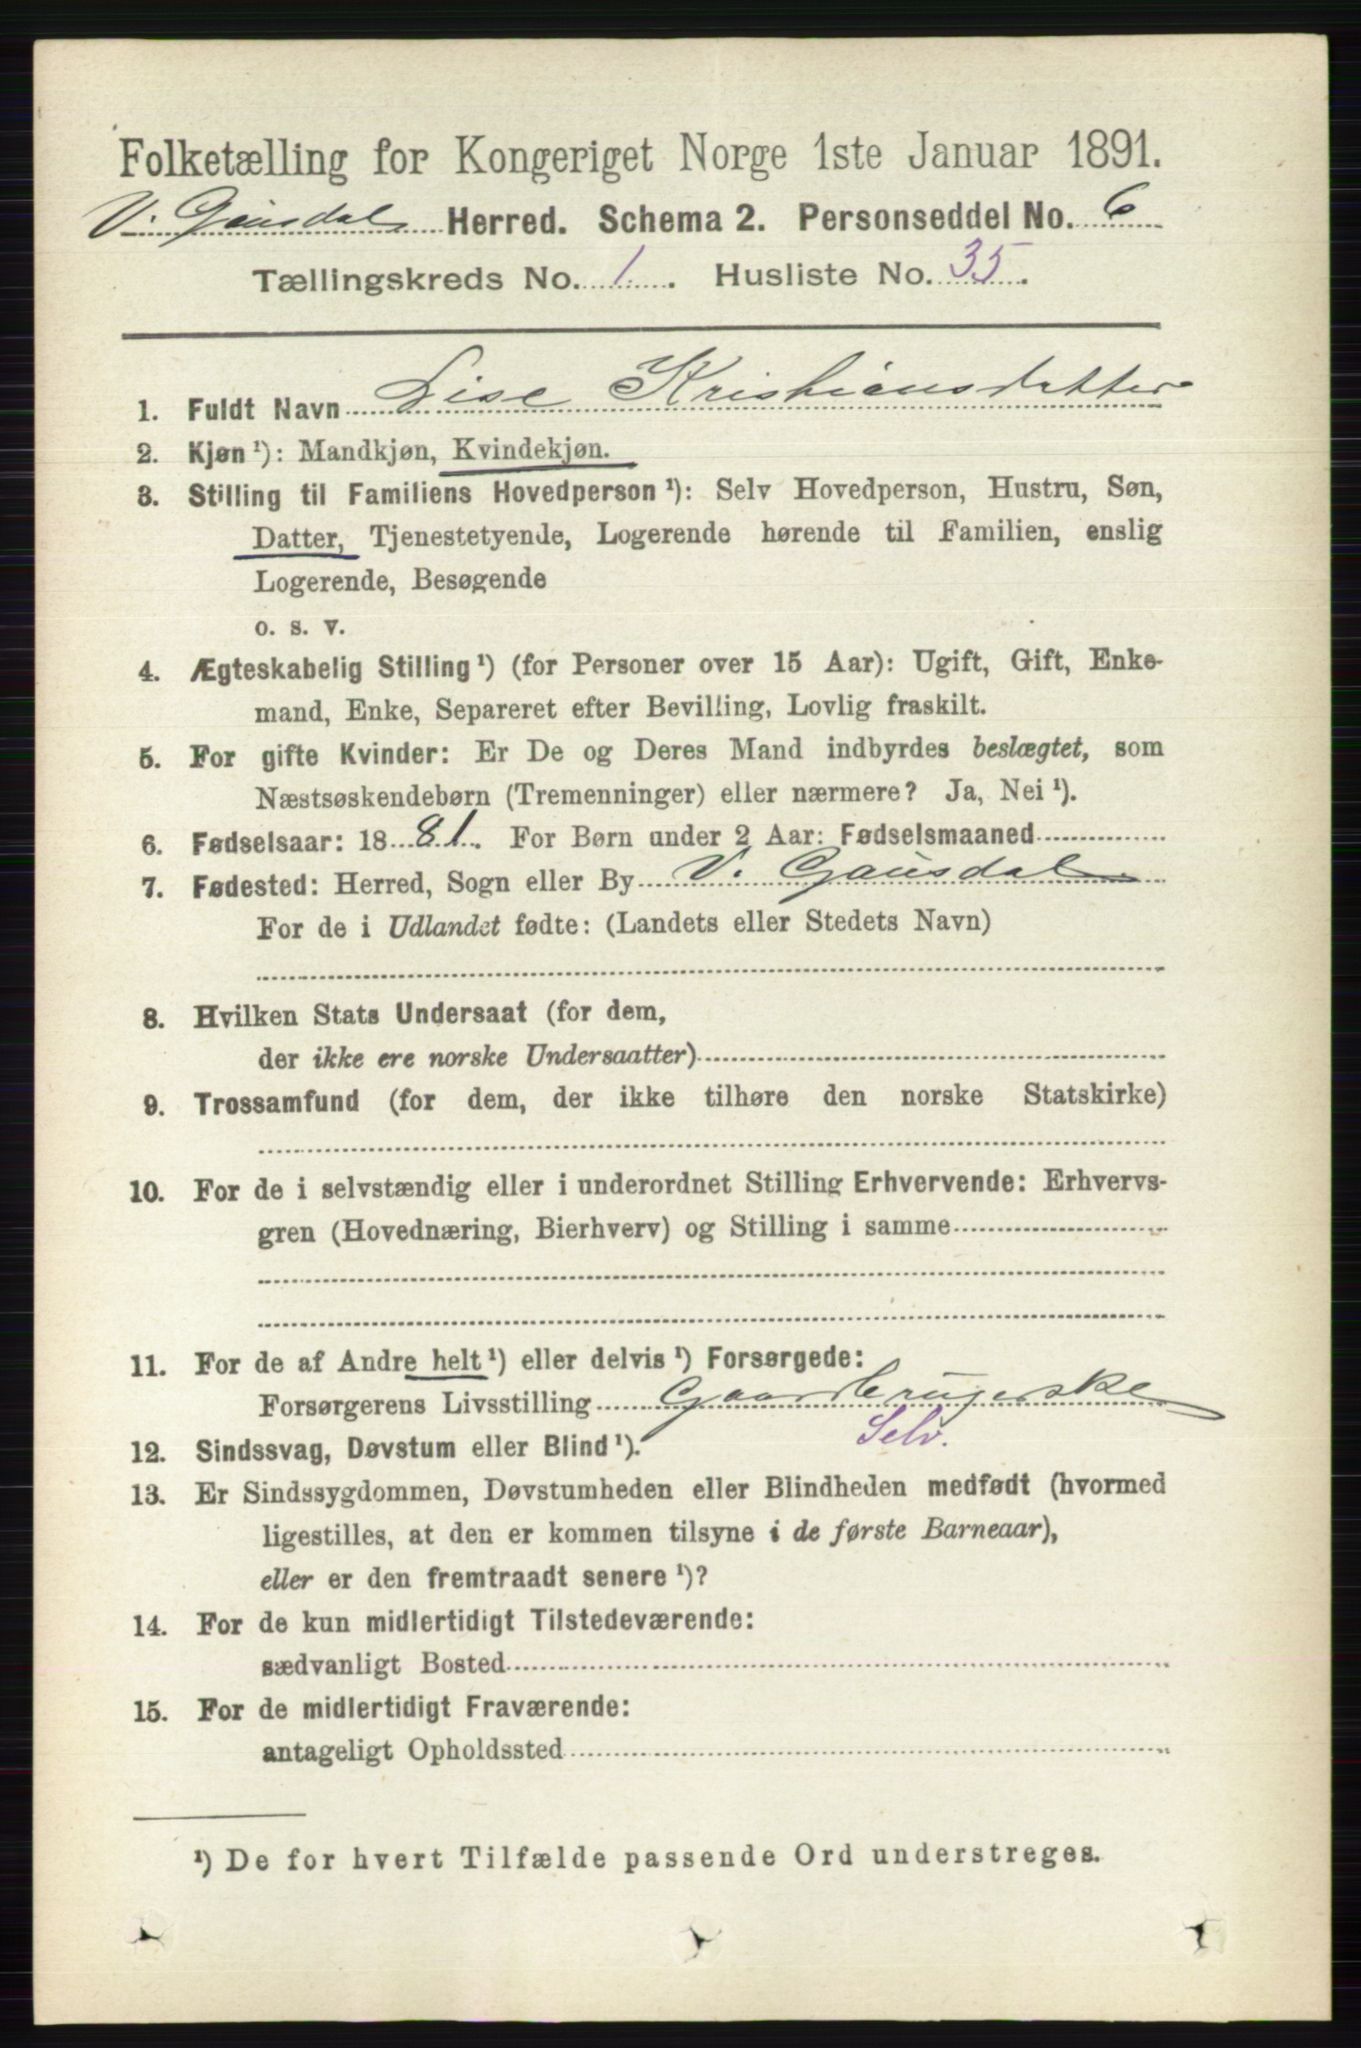 Folketælling for Kongeriget Norge 1ste Januar 1891.
V. Gausdal Herred. Schema 2. Personseddel No. 6
Tællingskreds No. 1. Husliste No. 35.
1. Fuldt Navn Lise Kristiansdatter
2. Kjøn ¹): Mandkjøn, Kvindekjøn.
3. Stilling til Familiens Hovedperson ¹): Selv Hovedperson, Hustru, Søn,
Datter, Tjenestetyende, Logerende hørende til Familien, enslig
Logerende, Besøgende
o. s. v.
4. Ægteskabelig Stilling ¹) (for Personer over 15 Aar): Ugift, Gift, Enke-
mand, Enke, Separeret efter Bevilling, Lovlig fraskilt.
5. For gifte Kvinder: Er De og Deres Mand indbyrdes beslægtet, som
Næstsøskendebørn (Tremenninger) eller nærmere? Ja, Nei ¹).
6. Fødselsaar: 1881. For Børn under 2 Aar: Fødselsmaaned
7. Fødested: Herred, Sogn eller By V. Gausdal
For de i Udlandet fødte: (Landets eller Stedets Navn)
8. Hvilken Stats Undersaat (for dem,
der ikke ere norske Undersaatter)
9. Trossamfund (for dem, der ikke tilhøre den norske Statskirke)
10. For de i selvstændig eller i underordnet Stilling Erhvervende: Erhvervs-
gren (Hovednæring, Bierhverv) og Stilling i samme
11. For de af Andre helt ¹) eller delvis ¹) Forsørgede:
Forsørgerens Livsstilling Gaardbrugerske
Selv.
12. Sindssvag, Døvstum eller Blind ¹).
13. Er Sindssygdommen, Døvstumheden eller Blindheden medfødt (hvormed
ligestilles, at den er kommen tilsyne i de første Barneaar),
eller er den fremtraadt senere ¹)?
14. For de kun midlertidigt Tilstedeværende:
sædvanligt Bosted
15. For de midlertidigt Fraværende:
antageligt Opholdssted
¹) De for hvert Tilfælde passende Ord understreges.